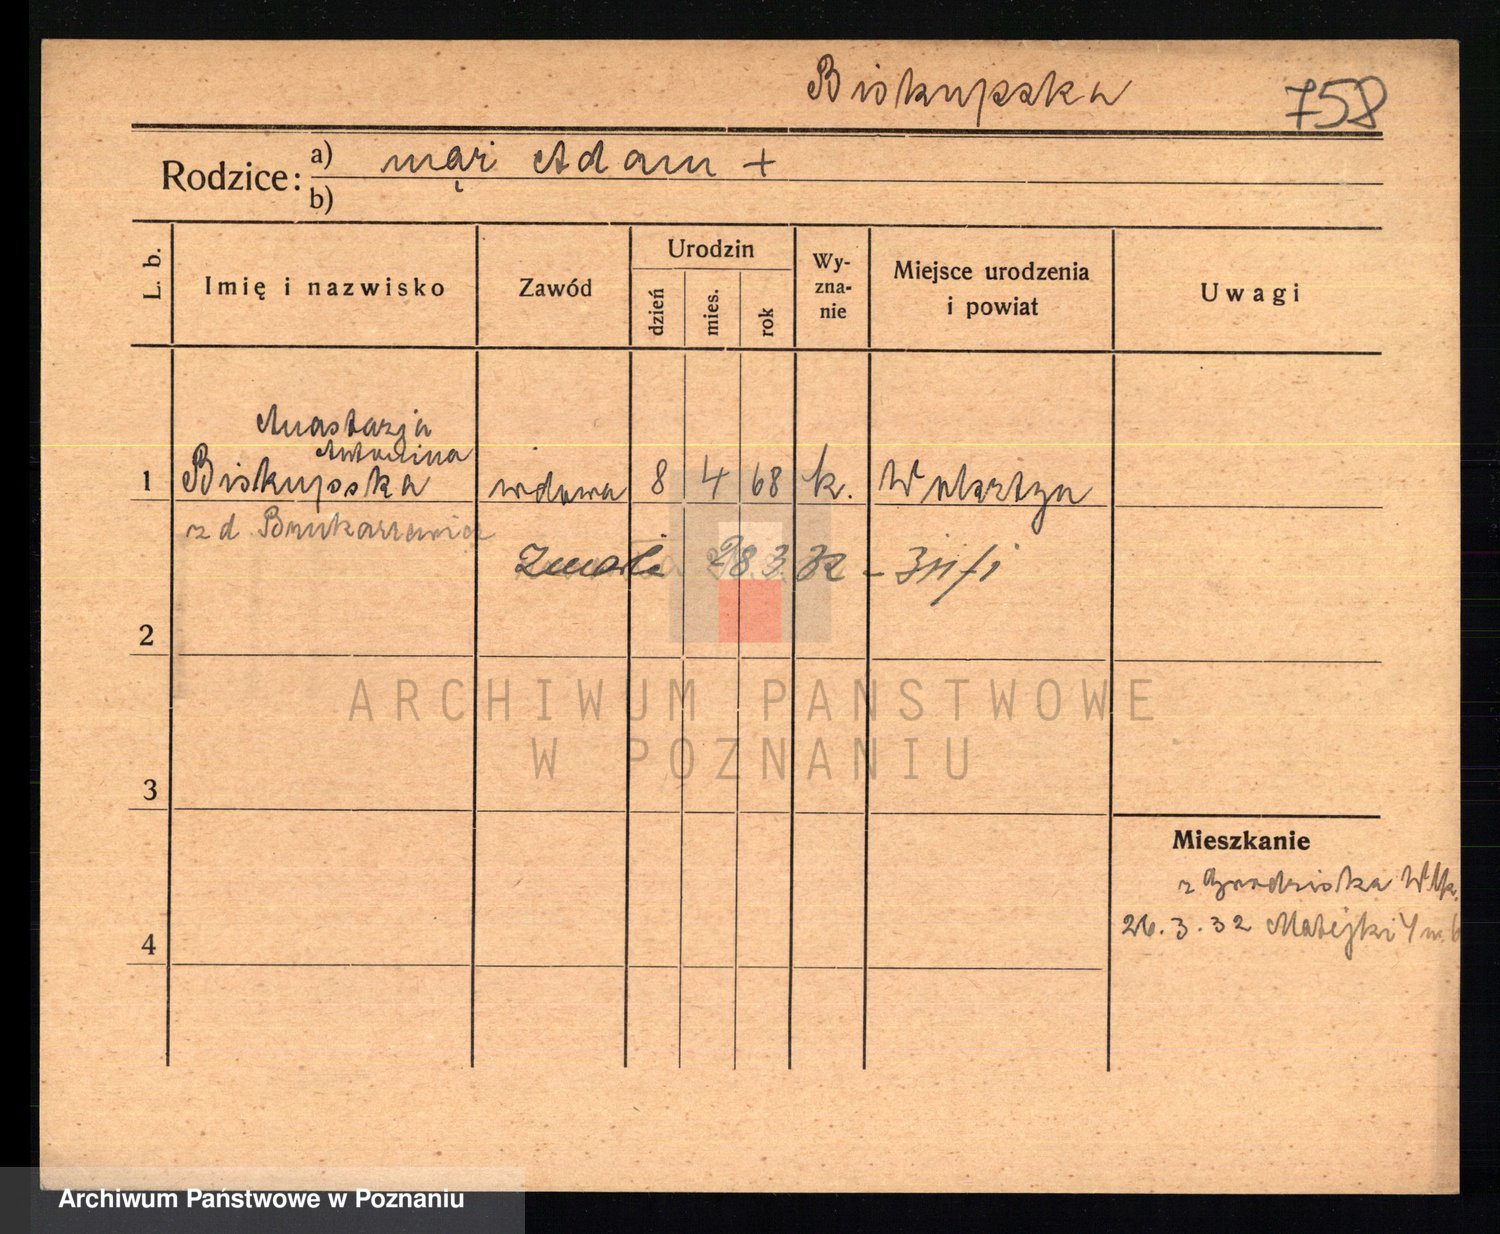 Biskupska 758
Rodzice: a) mąż Adam +
b)
L. b. Imię i nazwisko Zawód Urodzin dzień mies. rok Wy-zna-nie Miejsce urodzenia i powiat Uwagi
Anastazja
Antonina
1 Biskupska wdowa 8 4 68 k.
z d
Zmarła 28.3.32
2
ARCHIWUM PAŃSTWOWE
W POZNANIU
3
Mieszkanie
z Grodziska Wlkp.
4 26.3.32 Matejki
Archiwum Państwowe w Poznaniu